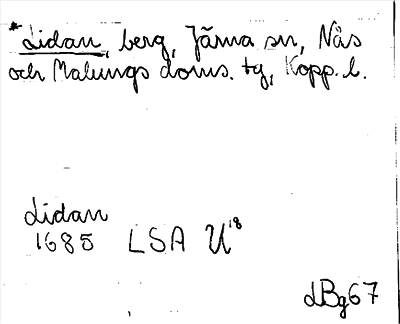 *Lidan, berg, Järna sn, Nås
och Malungs doms. tg, Kopp. l.
Lidan
1685 LSA U18
dBg67